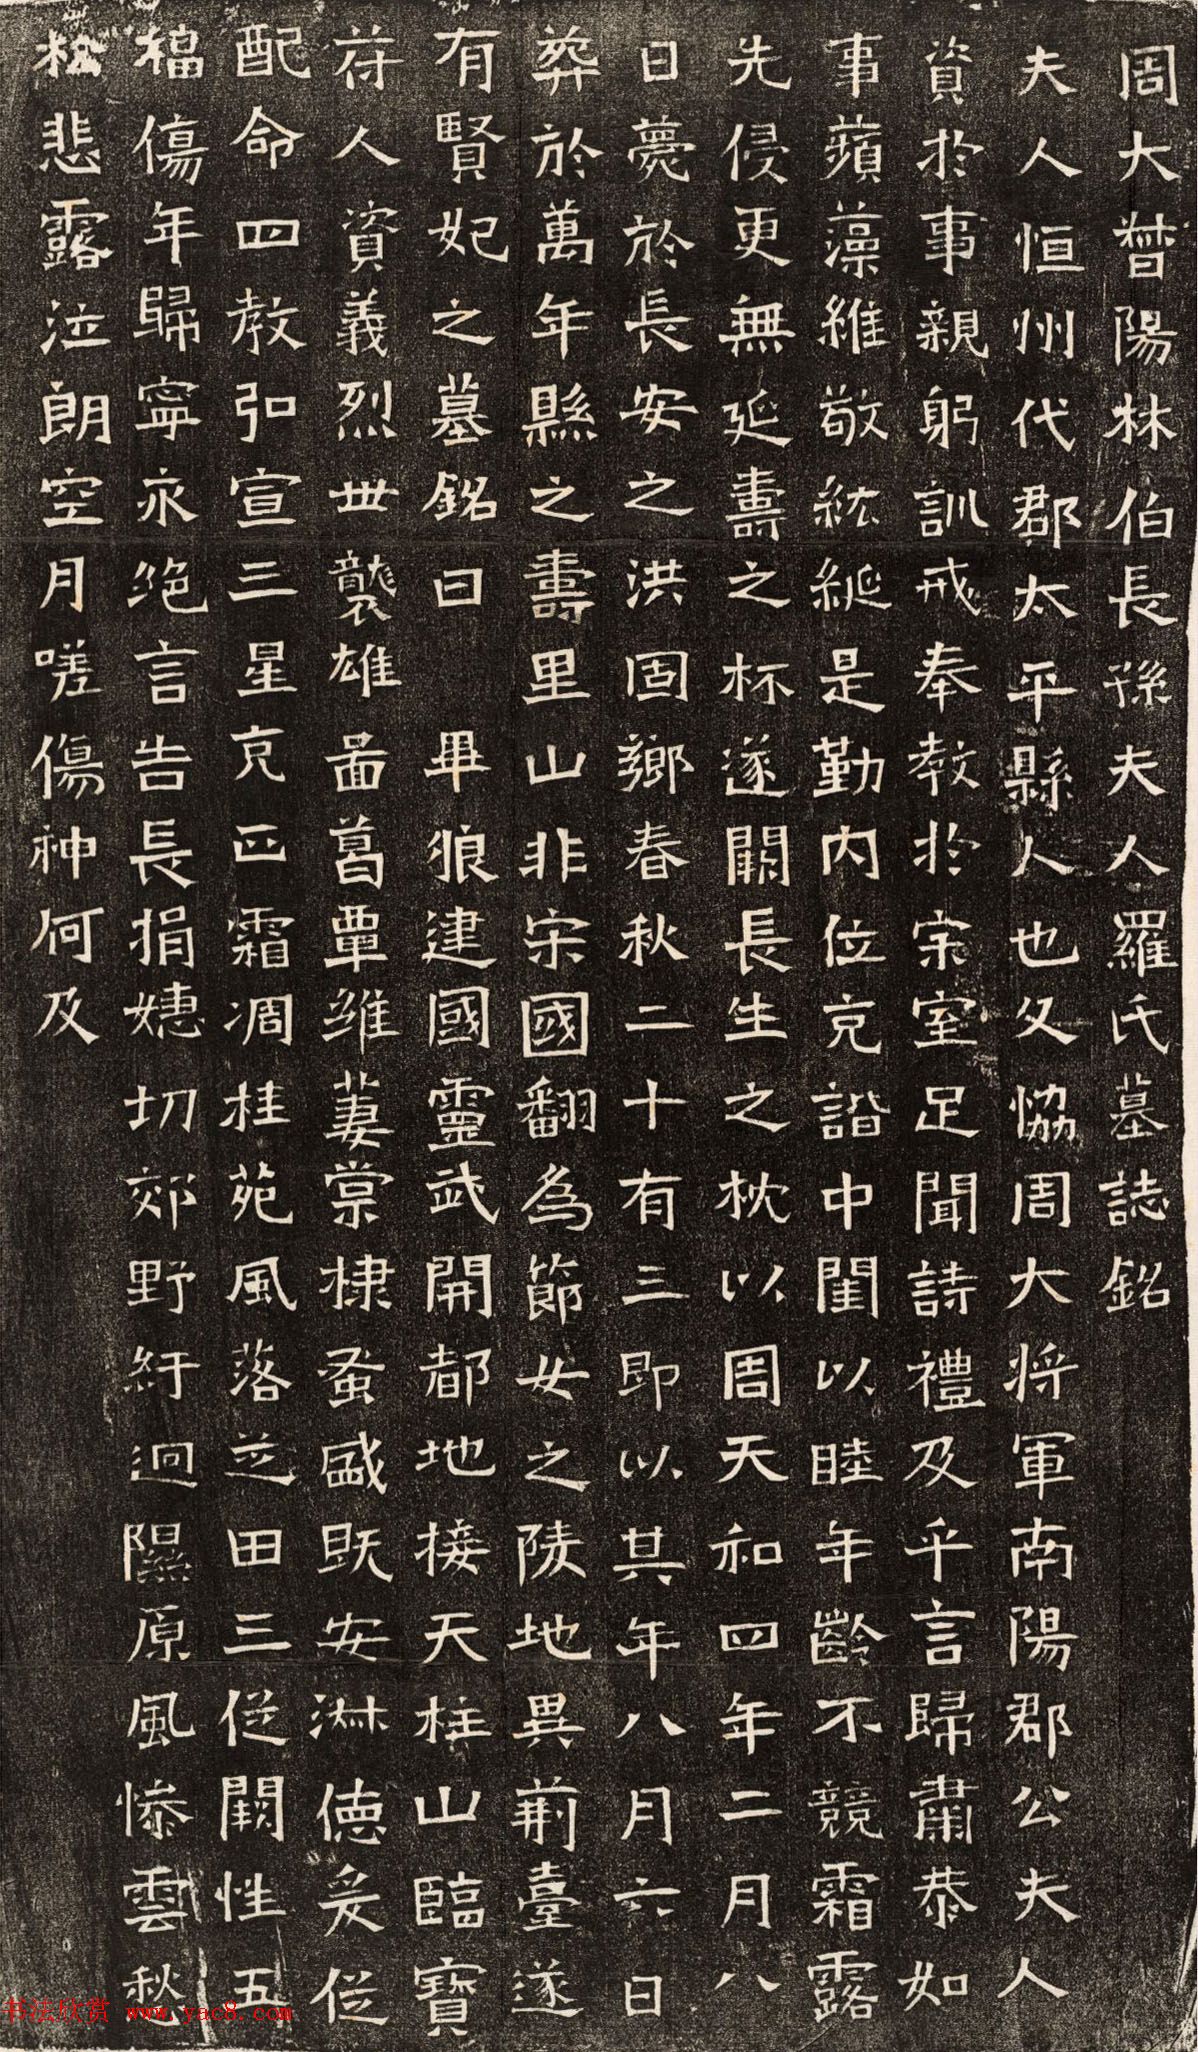 周大都督陽林伯長孫夫人羅氏墓誌銘
夫人恒州代郡太平縣人也父協周大將軍南陽郡公夫人
資於事親躬訓戒奉教於宗室足聞詩禮及乎言歸肅恭如
事蘋藻維敬紘綖是勤內位克諧中閨以睦年齡不競霜露
先侵更無延壽之杯遂闕長生之枕以周天和四年二月八
日薨於長安之洪固鄉春秋二十有三即以其年八月六日
葬於萬年縣之壽里山非宋國翻為節女之陵地異荊臺遂
有賢妃之墓銘曰 畢狼建國靈武開都地接天柱山臨寶
符人資義烈世襲雄圖葛覃維萋棠棣蚤盛既安淋德爰從
配命四教弘宣三星克正霜凋桂苑風落芝田三從闕性五
福傷年歸寧永絕言告長捐悽切郊野紆迴隰原風慘雲愁
松悲露泣朗空月嗟傷神何及
书法欣赏 www.yac8.com